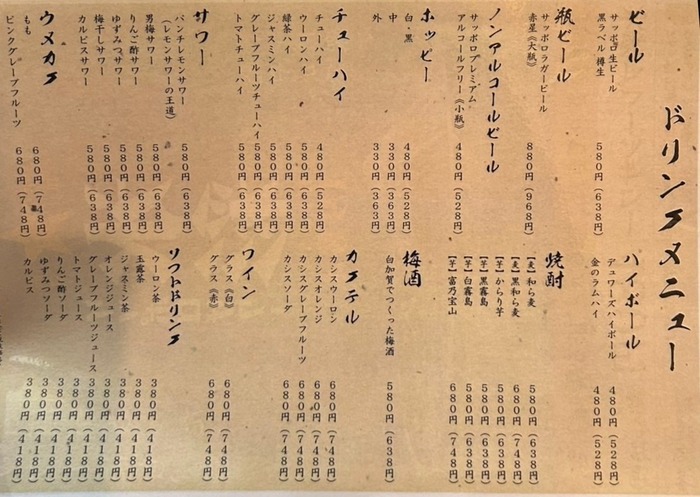 ドリンクメニュー
ビール
サッポロ生ビール
黒ラベル 樽生 580円(638円)
瓶ビール
サッポロラガービール
赤星《大瓶》 880円(968円)
ノンアルコールビール
サッポロプレミアム
アルコールフリー《小瓶》 480円(528円)
ホッピー
白・黒 480円(528円)
中 330円(363円)
外 330円(363円)
チューハイ
チューハイ 480円(528円)
ウーロンハイ 580円(638円)
緑茶ハイ 580円(638円)
ジャスミンハイ 580円(638円)
グレープフルーツチューハイ 580円(638円)
トマトチューハイ 580円(638円)
サワー
パンチレモンサワー
(レモンサワーの王道) 580円(638円)
男梅サワー 580円(638円)
りんご酢サワー 580円(638円)
ゆずみつサワー 580円(638円)
梅干しサワー 580円(638円)
カルピスサワー 580円(638円)
ウメカク
もも 680円(748円)
ピンクグレープフルーツ 680円(748円)
ハイボール
デュワーズハイボール 480円(528円)
金のラムハイ 480円(528円)
焼酎
【麦】和ら麦 580円(638円)
【麦】黒和ら麦 680円(748円)
【芋】からり芋 580円(638円)
【芋】黒霧島 580円(638円)
【芋】白霧島 580円(638円)
【芋】富乃宝山 680円(748円)
梅酒
白加賀でつくった梅酒 580円(638円)
カクテル
カシスウーロン 680円(748円)
カシスオレンジ 680円(748円)
カシスグレープフルーツ 680円(748円)
カシスソーダ 680円(748円)
ワイン
グラス《白》 680円(748円)
グラス《赤》 680円(748円)
ソフトドリンク
ウーロン茶 380円(418円)
玉露茶 380円(418円)
ジャスミン茶 380円(418円)
オレンジジュース 380円(418円)
グレープフルーツジュース 380円(418円)
トマトジュース 380円(418円)
りんご酢ソーダ 380円(418円)
ゆずみつソーダ 380円(418円)
カルピス 380円(418円)